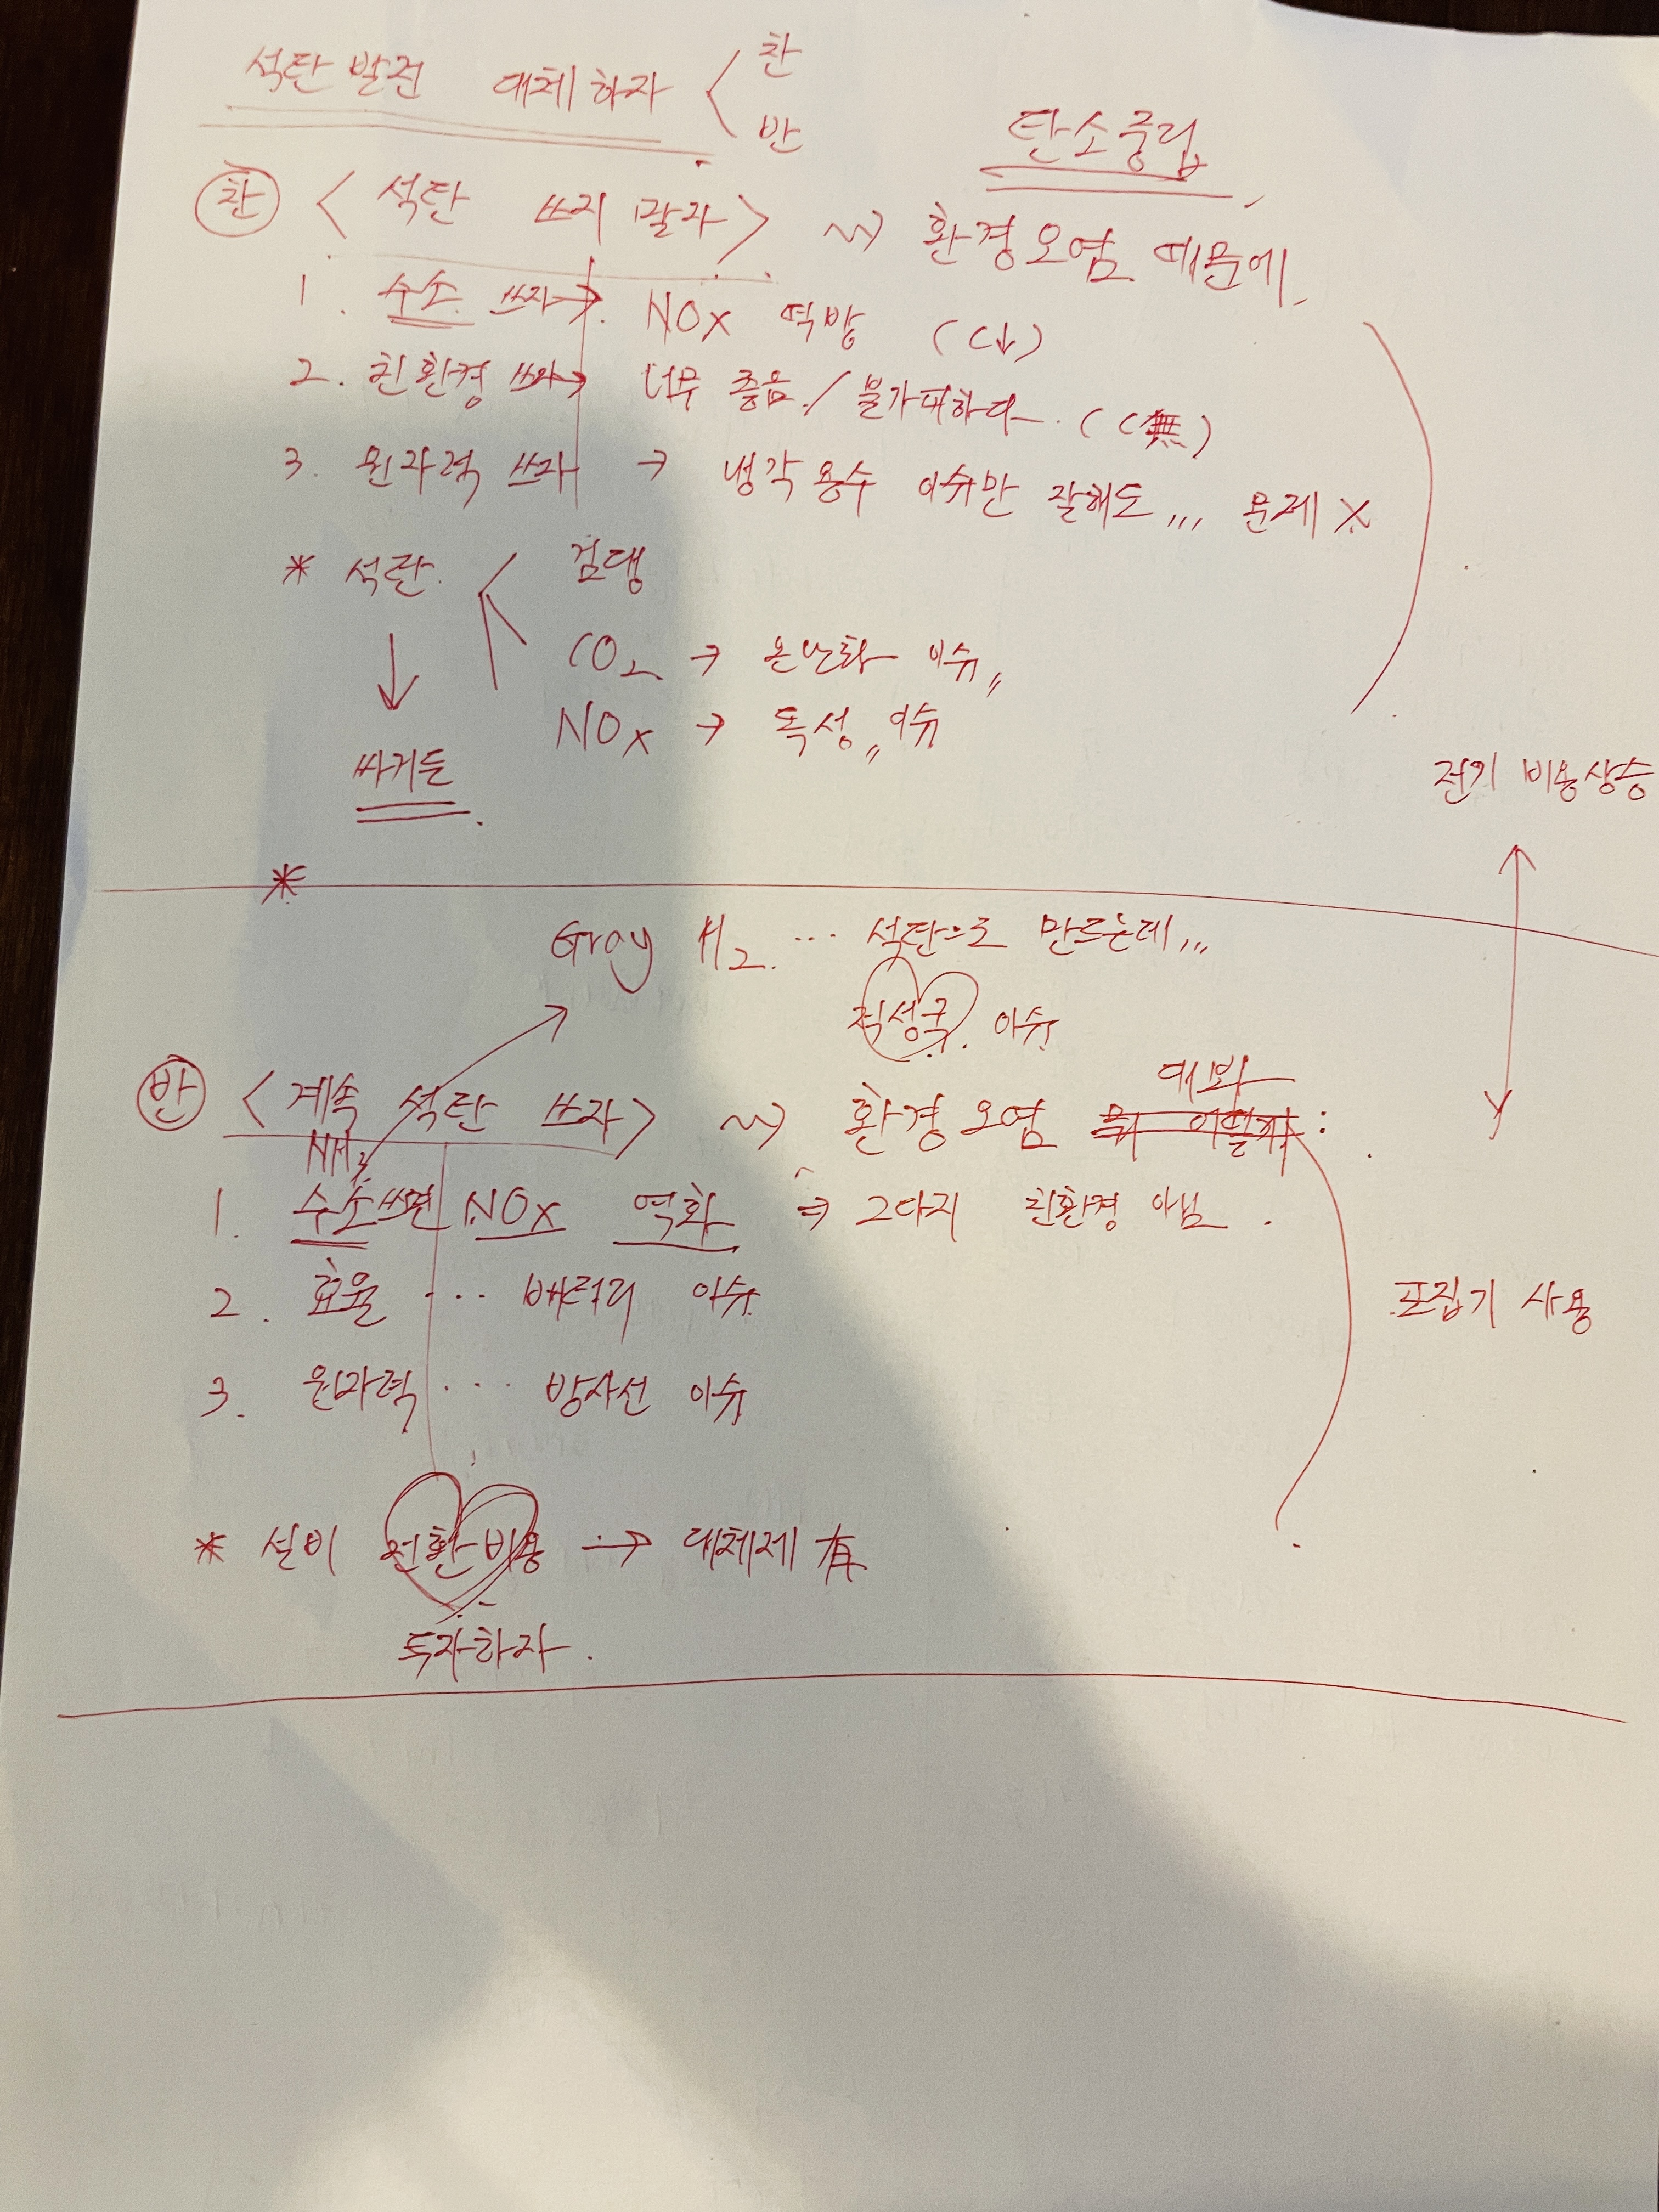 석탄 발전 대체하자 < 찬
반
탄소중립
찬 < 석탄 쓰지 말자 > ~> 환경오염 때문에.
1. 수소 쓰자 → NOx 역방 (C↓)
2. 친환경 쓰자 → 너무 좋음 / 불가피하다. (C 無)
3. 원자력 쓰자 → 냉각용수 이슈만 잘해도,,, 문제 X
* 석탄 < 검댕
CO₂ → 온난화 이슈〃
NOx → 독성〃 이슈
↓
싸거든
전기 비용상승
*
Gray H₂ ··· 석탄으로 만드는데,,,
적성국 이슈
대봐
반 < 계속 석탄 쓰자 > ~> 환경오염 :
NH₃
1. 수소쓰면 NOx 역화 ⇒ 그다지 친환경 아님.
2. 효율 ··· 배터리 이슈
3. 원자력 ··· 방사선 이슈
포집기 사용
* 설비 전환비용 → 대체제 有
투자하자.